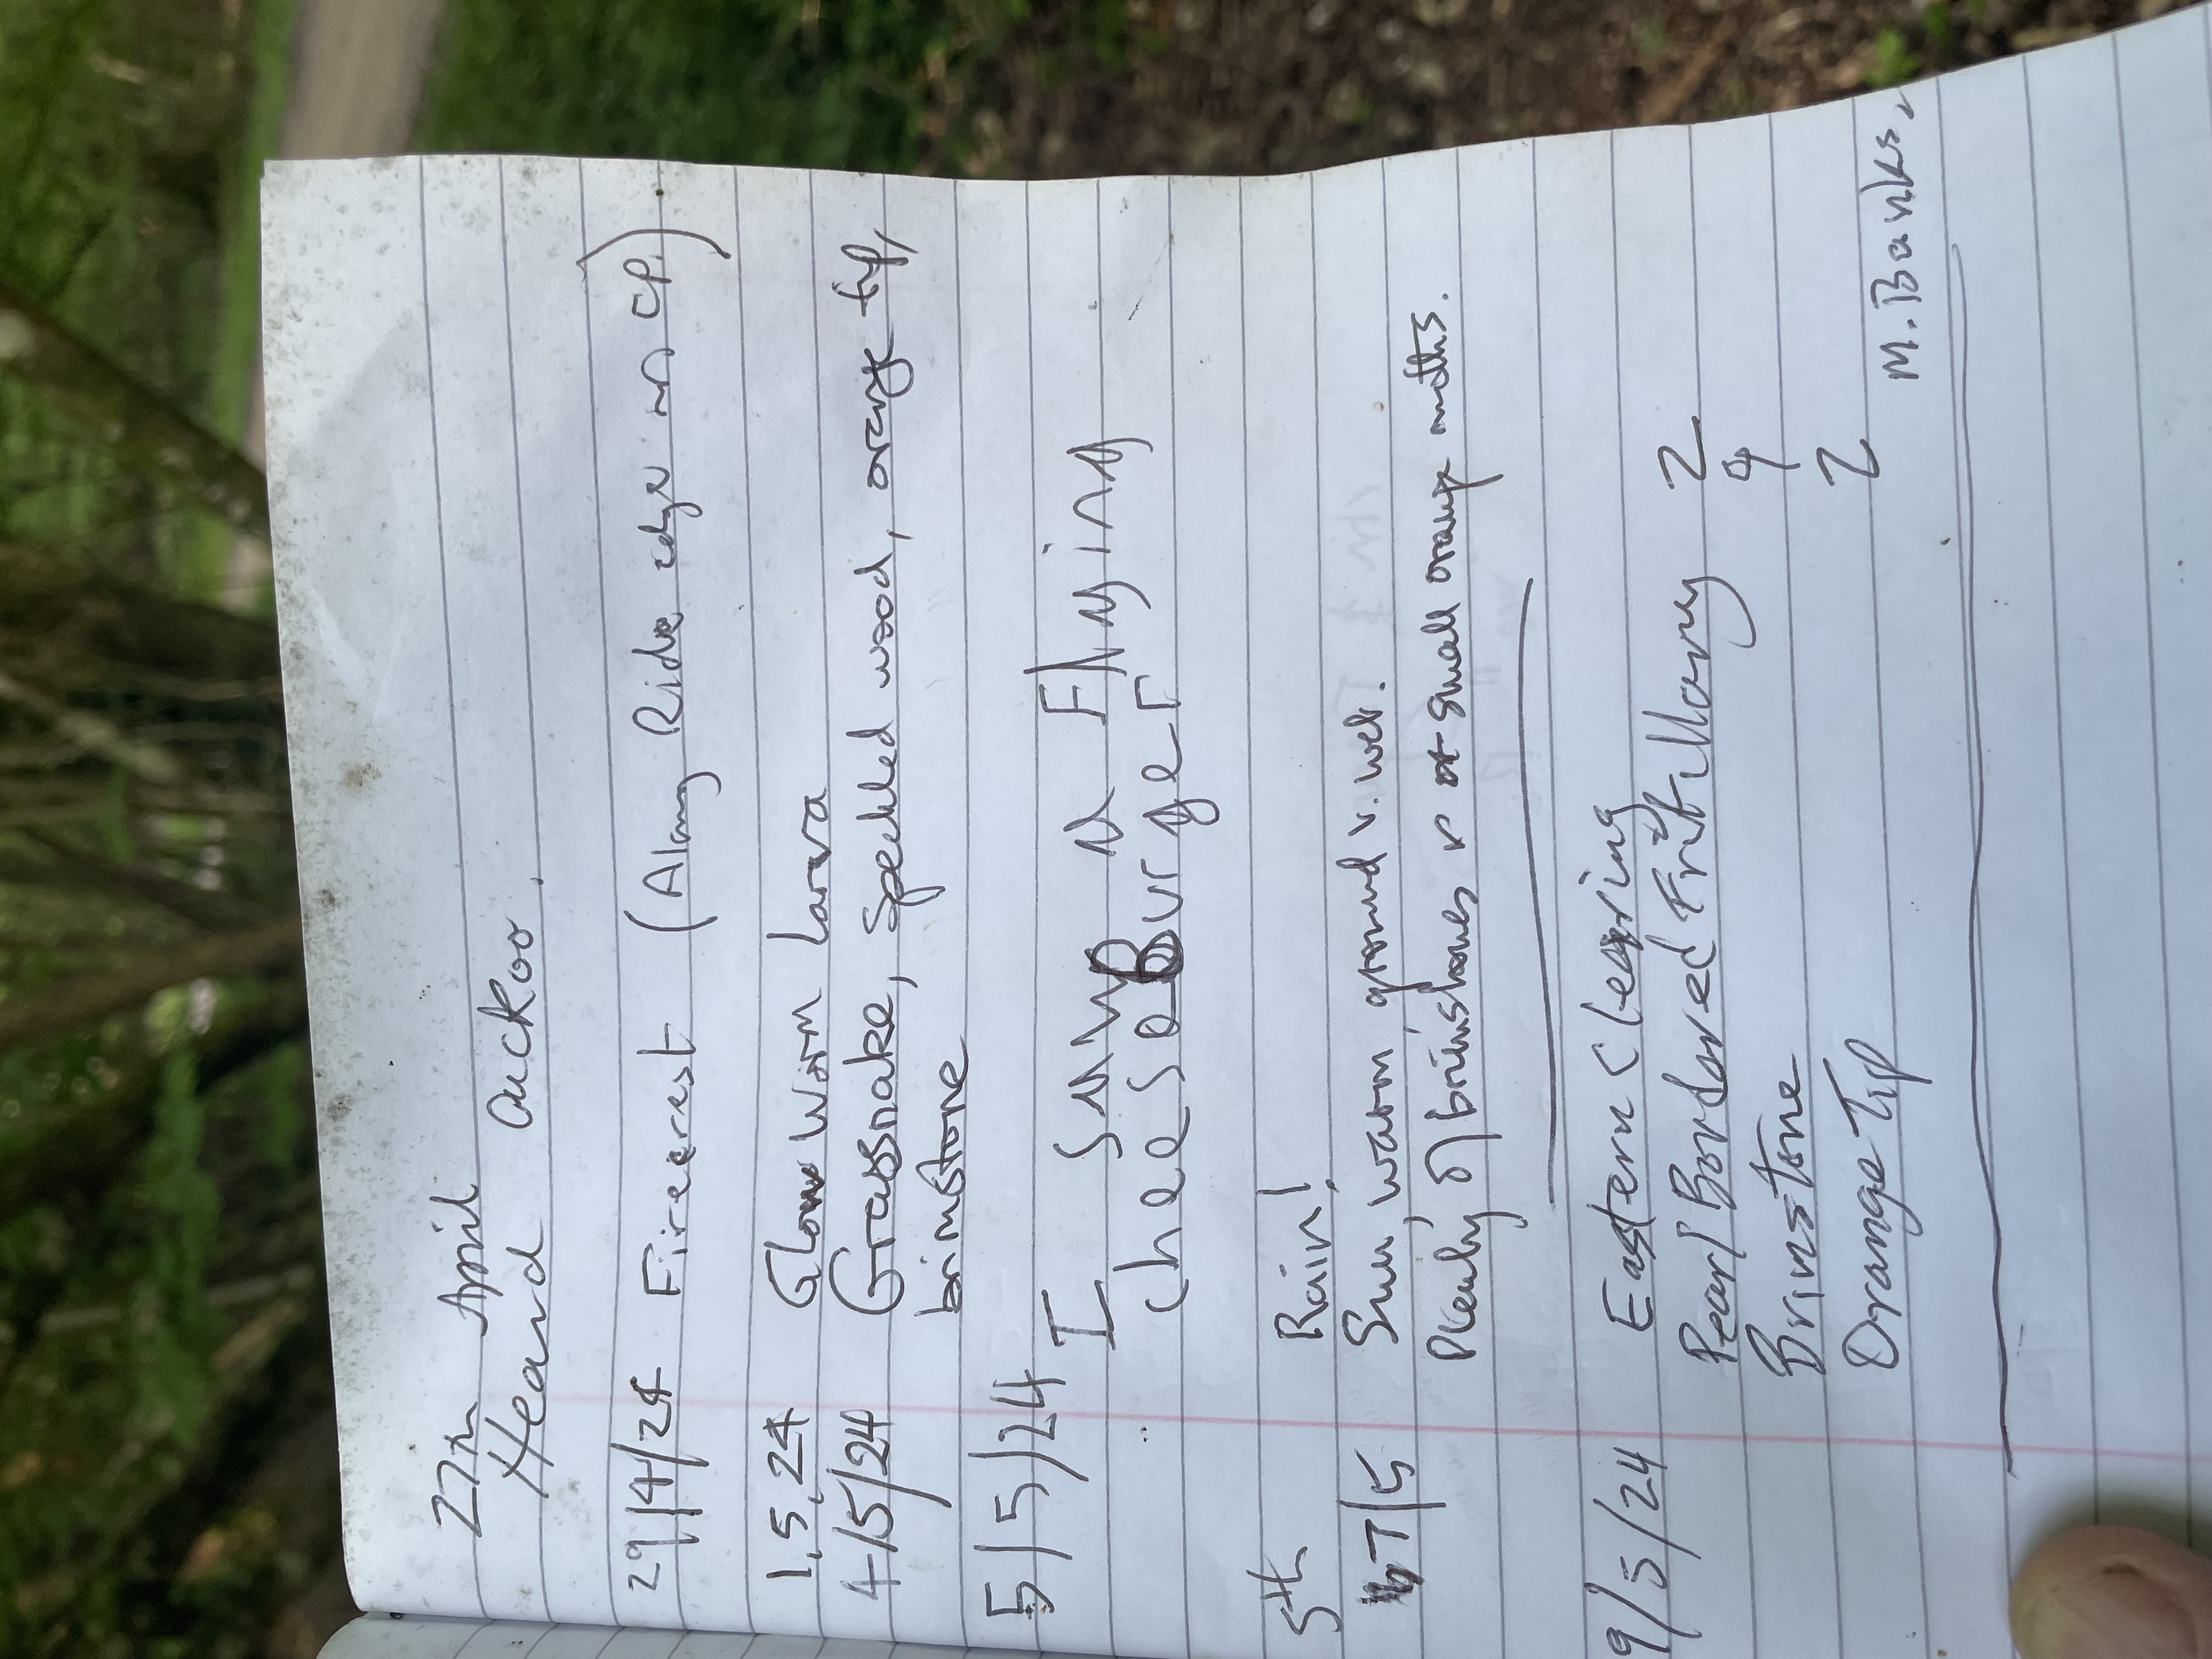 27th April
Heard cuckoo.
29/4/24 Firecrest (Along Ride edge nr CP.)
1,5,24 Glow Worm Larva
4/5/24 Grassnake, Speckled wood, orange tip,
brimstone
5/5/24 I Saw a Flying
CheeseBurger
5th Rain!
7/5 Sun, warm ground v. wet.
Plenty of brimstones small orange moths.
9/5/24 Eastern Clearing
Pearl Bordered Fritillary 2
Brimstone 4
Orange Tip 2
M. Banks.